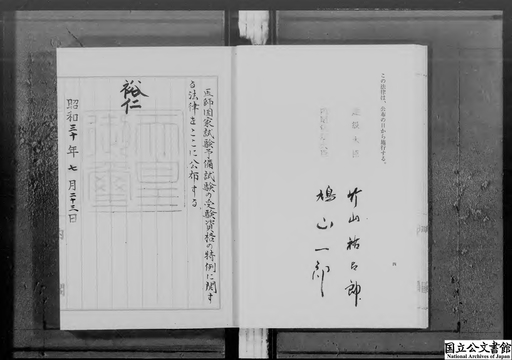 この法律は、公布の日から施行する。
竹山祐太郎
鳩山一郎
医師国家試験予備試験の受験資格の特例に関す
る法律をここに公布する。
裕仁
天皇
御璽
昭和三十年七月二十三日
国立公文書館
National Archives of Japan